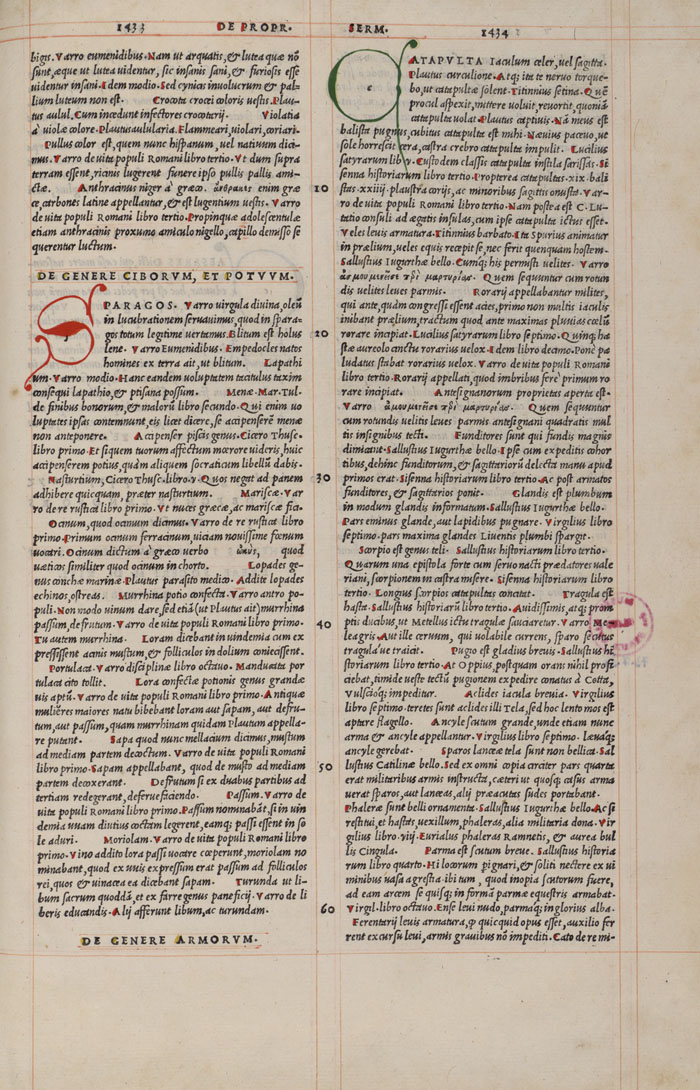 1433 DE PROPR.
bigis. Varro eumenidibus. Nam ut arquatis, & lutea quæ nō
sunt, æque ut lutea uidentur, sic insanis sani, & furiosis esse
uidentur insani. Idem modio. Sed cynicis inuolucrum & pal-
lium luteum non est. Crocota crocei coloris uestis. Plau-
tus aulul. Cum incedunt infectores crocotarij. Violatia
a' uiolæ colore. Plautus aulularia. Flammeari, uiolari, coriari.
Pullus color est, quem nunc hispanum, uel natiuum dici-
mus. Varro de uita populi Romani libro tertio. Vt dum supra
terram essent, ricinis lugerent funere ipso pullis pallis ami-
ctæ. Anthracinus niger a' græco. enim græ
ce, carbones latine appellantur, & est lugentium uestis. Varro
de uita populi Romani libro tertio. Propinquæ adolescentulæ
etiam anthracinis proxumo amiculo nigello, capillo demisso se
querentur luctum.
DE GENERE CIBORVM, ET POTVVM.
SPARAGOS. Varro uirgula diuina, oleū
in lucubrationem seruauimus, quod in spara-
gos totum legitime uertamus. Blitum est holus
lene. Varro Eumenidibus. Empedocles natos
homines ex terra ait, ut blitum. Lapathi
um. Varro modio. Hanc eandem uoluptatem tacitulus taxim
consequi lapathio, & ptisana possum. Menæ. Mar. Tul.
de finibus bonorum, & malorū libro secundo. Qui enim uo
luptates ipsas contemnunt, eis licet dicere, se acipenserē menæ
non anteponere. Accipenser piscis genus. Cicero Thusc.
libro primo. Et siquem tuorum affectum mœrore uideris, huic
accipenserem potius, quàm aliquem socraticum libellū dabis.
Nasturtium, Cicero Thusc. libro. v. Quos negat ad panem
adhibere quicquam, præter nasturtium. Mariscæ. Var
ro de re rustica libro primo. Vt nuces græcæ, ac mariscæ fici.
Ocinum, quod ocimum dicimus. Varro de re rustica libro
primo. Primum ocinum ferraginum, uiciam nouissime fœnum
uocari. Ocinum dictum a' græco uerbo quod
uaticos similiter quod ocinum in chorto. Lopades ge-
nus conchæ marinæ. Plautus parasito medico. Addite lopades
echinos, ostreas. Murrhina potio confecta. Varro antro po-
puli. Non modo uinum dare, sed etiā (ut Plautus ait) murrhina
passum, defrutum. Varro de uita populi Romani libro primo.
Tu autem murrhina. Loram dicebant in uindemia cum ex
pressissent acinis mustum, & folliculos in dolium coniecissent.
Portulaca. Varro disciplinæ libro octauo. Manducata por
tulaca cito tollit. Lora confectæ potionis genus grandæ
uis aptū. Varro de uita populi Romani libro primo. Antiquæ
mulieres maiores natu bibebant loram aut sapam, aut defru-
tum, aut passum, quam murrhinam quidam Plautum appella-
re putant. Sapa quod nunc mellacium dicimus, mustum
ad mediam partem decoctum. Varro de uita populi Romani
libro primo. Sapam appellabant, quod de musto ad mediam
partem decoxerant. Defrutum si ex duabus partibus ad
tertiam redegerant, defrueficiendo. Passum. Varro de
uita populi Romani libro primo. Passum nominabāt, si in uin
demia uuam diutius coctam legerent, eamq; passi essent in so
le aduri. Moriolam. Varro de uita populi Romani libro
primo. Vino addito lora passi uocare cœperunt, moriolam no
minabant, quod ex uuis expressum erat passum ad folliculos
rei, quos & uinacea ea dicebant sapam. Turunda ut li-
bum sacrum quoddā, et ex farre genus paneficij. Varro de li
beris educandis. Alij afferunt libum, ac turundam.
DE GENERE ARMORVM.
10
20
30
40
50
60
SERM. 1434
CATAPVLTA Iaculum celer, uel sagitta.
Plautus curculione. Atq; ita te neruo torque-
bo, ut catapultæ solent. Titinnius setina. Quē
procul aspexit, mittere uoluit, reuortit, quoniā
catapultæ uolat. Plautus captiuis. Nā meus est
balista pugnus, cubitus catapulta est mihi. Næuius paceuo, ut
sole horrescit cera, castra crebro catapulta impulit. Lucilius
satyrarum lib. v. Custodem classis catapulta instila sarissas. Si
senna historiarum libro tertio. Propterea catapultas. xix. bali
stas. xxiiij. plaustra corijs, ac minoribus sagittis onusta. Var-
ro de uita populi Romani libro. Nam postea est C. Lu-
tatio consuli ad ægatis insulas, cum ipse catapulta ictus esset.
Veles leuis armatura. Titinnius barbato. Ita Spurius animatur
in prælium, ueles equis recepit se, nec ferit quenquam hostem.
Sallustius Iugurthæ bello. Eumq; his permisti uelites. Varro
Quem sequuntur cum rotun
dis uelites leues parmis. Rorarij appellabantur milites,
qui ante, quàm congressi essent acies, primo non multis iaculis
inibant prælium, tractum quod ante maximas pluuias cœlū
rorare incipiat. Lucilius satyrarum libro septimo. Quinq; ha
stæ aureolo cinctu rorarius uelox. Idem libro decimo. Pone pa
ludatus stabat rorarius uelox. Varro de uita populi Romani
libro tertio Rorarij appellati, quod imbribus ferè primum ro
rare incipiat. Antesignanorum proprietas aperta est.
Varro Quem sequuntur
cum rotundis uelitis leues parmis antesignani quadratis mul
tis insignibus tecti. Funditores sunt qui fundis magnis
dimicant. Sallustius Iugurthæ bello. Ipse cum expeditis cohor
tibus, dehinc funditorum, & sagittariorū delecta manu apud
primos erat. Sisenna historiarum libro tertio. Ac post armatos
funditores, & sagittarios ponit. Glandis est plumbum
in modum glandis informatum. Sallustius Iugurthæ bello.
Pars eminus glande, aut lapidibus pugnare. Virgilius libro
septimo. pars maxima glandes Liuentis plumbi spargit.
Scorpio est genus teli. Sallustius historiarum libro tertio.
Quarum una epistola forte cum seruo nacti prædatores uale
riani, scorpionem in castra misere. Sisenna historiarum libro
tertio. Longius scorpios catapultas concitat. Tragula est
hasta. Sallustius historiarū libro tertio. Auidissimis, atq; prom
ptis ducibus, ut Metellus ictu tragulæ sauciaretur. Varro Me-
leagris. Aut ille ceruum, qui uolabile currens, sparo secutus
tragula' ue traicit. Pugio est gladius breuis. Sallustius hi
storiarum libro tertio. At Oppius, postquam orans nihil profi
ciebat, timide ueste tectū pugionem expedire conatus à Cotta,
Vulscioq; impeditur. Aclides iacula breuia. Virgilius
libro septimo. teretes sunt aclides illi Tela, sed hæc lento mos est
aptare flagello. Ancyle scutum grande, unde etiam nunc
arma & ancyle appellantur. Virgilius libro septimo. Læuaq;
ancyle gerebat. Sparos lanceæ tela sunt non bellica. Sal
lustius Catilinæ bello. Sed ex omni copia circiter pars quarta
erat militaribus armis instructa, cæteri ut quosq; casus arma
uerat sparos, aut lanceas, alij præacutas sudes portabant.
Phaleræ sunt belli ornamenta. Sallustius Iugurthæ bello. Ac si
restitui, et hastas, uexillum, phaleras, alia militaria dona. Vir
gilius libro. viij. Eurialus phaleras Ramnetis, & aurea bul
lis Cingula. Parma est scutum breue. Sallustius historia
rum libro quarto. Hi locorum pignari, & soliti nectere ex ui
minibus uasa agrestia. ibi tum, quod inopia scutorum fuere,
ad eam arcem se quisq; in formā parmæ equestris armabat.
Virgil. libro octauo. Ense leui nudo, parmaq; inglorius alba.
Ferentarij leuis armatura, φ quicquid opus esset, auxilio fer
rent excursu leui, armis grauibus nō impediti. Cato de re mi-